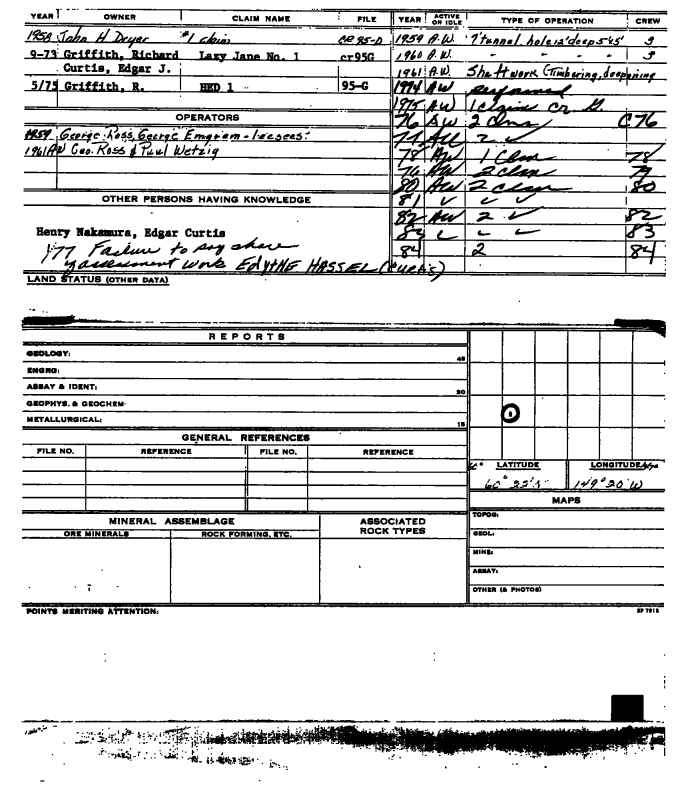 YEAR OWNER CLAIM NAME FILE YEAR ACTIVE OR IDLE TYPE OF OPERATION CREW
1958 John H Dryer #1 claim CR 95-D
9-73 Griffith, Richard Lazy Jane No. 1 cr95G
Curtis, Edgar J.
5/75 Griffith, R. HED 1 95-G
1959 A.W. 7' tunnel, hole 12' deep 5'x5' 3
1960 A.W. " " " 3
1961 A.W. Shaft work (Timbering, deepening
1974 AW
1975 AW 1 claim cr G.
76 AW 2 Clms C76
77 AW 2 ✓
78 AW 1 Clm 78
2 Clm 79
80 AW 2 Clm 80
81 ✓ ✓ ✓
82 AW 2 ✓ 82
83 83
84 2 84
OPERATORS
1959 George Ross, George - leasees.
1961 AW Geo. Ross & Paul Wetzig
OTHER PERSONS HAVING KNOWLEDGE
Henry Nakamura, Edgar Curtis
1/77 Failure to pay share
assessment work EdYTHE HASSEL (Curtis)
LAND STATUS (OTHER DATA)
REPORTS
GEOLOGY: 45
ENGRG:
ASSAY & IDENT: 30
GEOPHYS. & GEOCHEM:
METALLURGICAL: 15
GENERAL REFERENCES
FILE NO. REFERENCE FILE NO. REFERENCE
LATITUDE LONGITUDE
149° 20' W
MAPS
TOPOG:
GEOL:
MINE:
ASSAY:
OTHER (& PHOTOS)
MINERAL ASSEMBLAGE ASSOCIATED ROCK TYPES
ORE MINERALS ROCK FORMING, ETC.
POINTS MERITING ATTENTION: